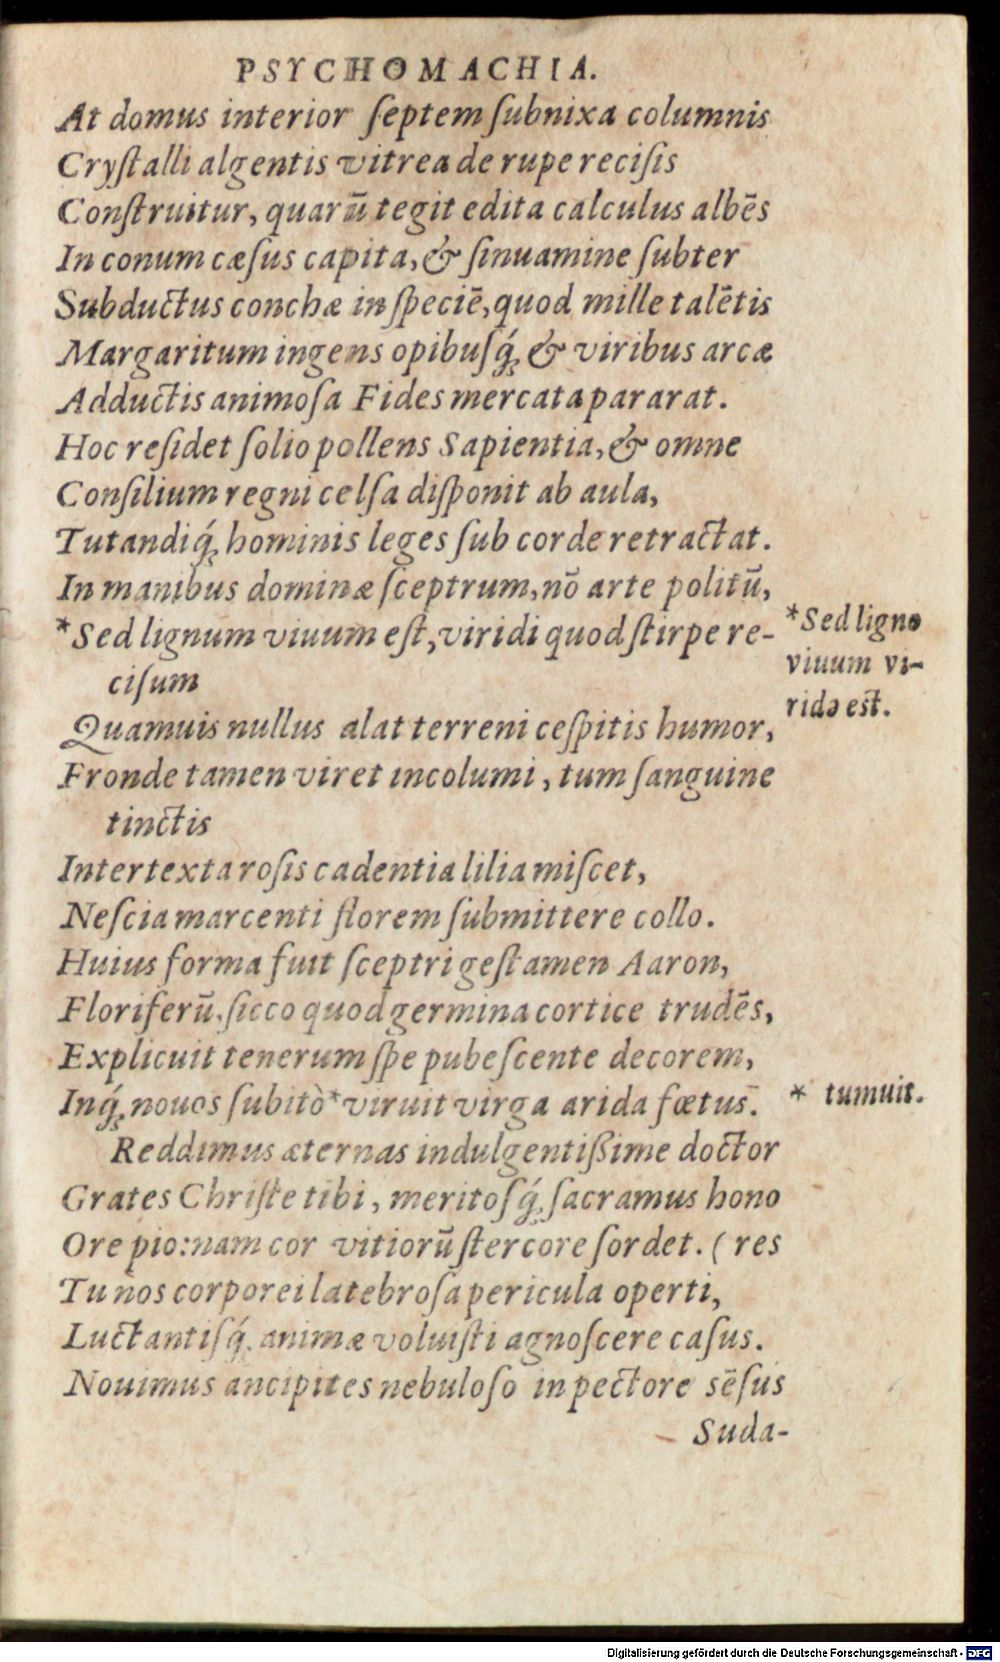 PSYCHOMACHIA.
At domus interior ſeptem ſubnixa columnis
Cryſtalli algentis vitrea de rupe reciſis
Conſtruitur, quarū tegit edita calculus albēs
In conum cæſus capita, & ſinuamine ſubter
Subductus conchæ in ſpeciē, quod mille talētis
Margaritum ingens opibuſq́; & viribus arcæ
Adductis animoſa Fides mercata pararat.
Hoc reſidet ſolio pollens Sapientia, & omne
Conſilium regni celſa diſponit ab aula,
Tutandiq́; hominis leges ſub corde retractat.
In manibus dominæ ſceptrum, nō arte politū,
*Sed lignum viuum eſt, viridi quod ſtirpe re-
ciſum
*Sed ligno
viuum vi-
ride est.
Quamuis nullus alat terreni ceſpitis humor,
Fronde tamen viret incolumi, tum ſanguine
tinctis
Intertexta roſis cadentia lilia miſcet,
Neſcia marcenti florem ſubmittere collo.
Huius forma fuit ſceptri geſtamen Aaron,
Floriferū, ſicco quod germina cortice trudēs,
Explicuit tenerum ſpe pubeſcente decorem,
Inq́; nouos ſubitò *viruit virga arida fœtus.
* tumuit.
Reddimus æternas indulgentißime doctor
Grates Chriſte tibi, meritoſq́; ſacramus hono
Ore pio: nam cor vitiorū ſtercore ſordet. (res
Tu nos corporei latebroſa pericula operti,
Luctantiſq́; animæ voluiſti agnoſcere caſus.
Nouimus ancipites nebuloſo in pectore sēſus
Suda-
Digitalisierung gefördert durch die Deutsche Forschungsgemeinschaft - DFG